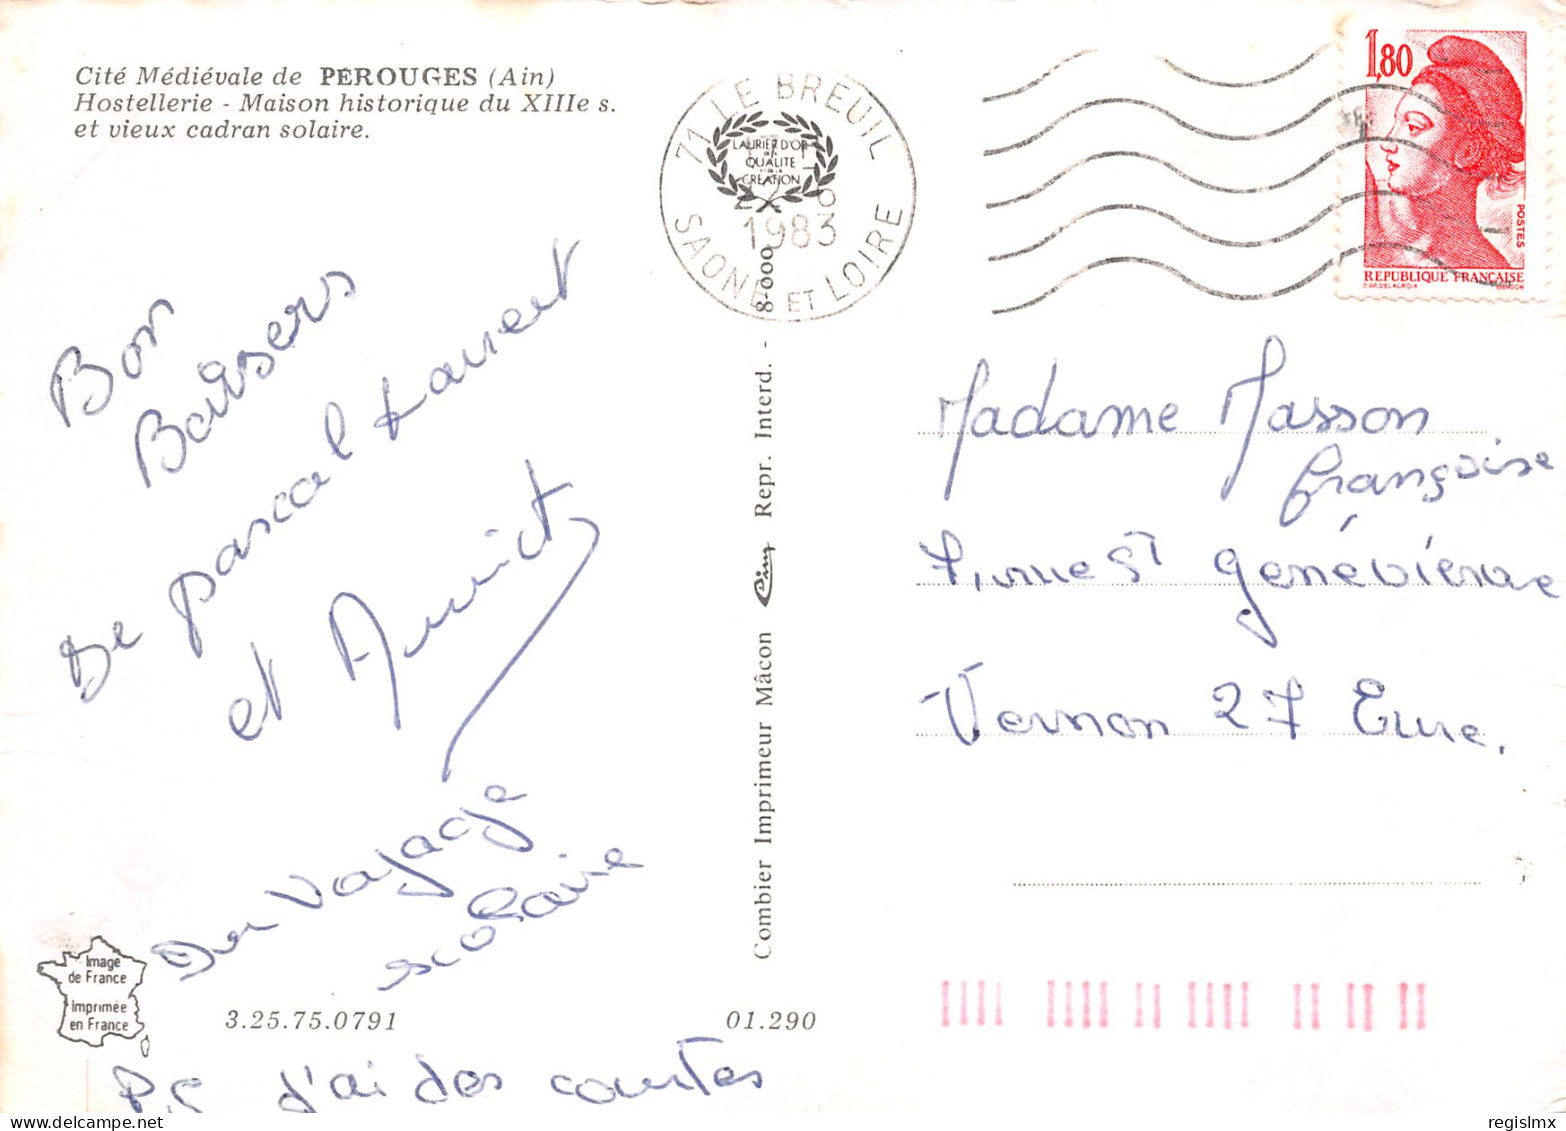 Cité Médiévale de PEROUGES (Ain)
Hostellerie - Maison historique du XIIIe s.
et vieux cadran solaire.
71 LE BREUIL
LAURIER D'OR
QUALITE
CREATION
1983
SAONE ET LOIRE
1,80
POSTES
REPUBLIQUE FRANÇAISE
D'AP. DELACROIX
GANDON
Bon
Baisers
De pascal Laurent
et
Du Voyage
scolaire
P.S j'ai des courtes
Combier Imprimeur Mâcon Cim Repr. Interd. - 8-000
Madame Masson
Françoise
St Genéviève
Vernon 27 Eure.
Image
de France
Imprimée
en France
3.25.75.0791
01.290
regislmx